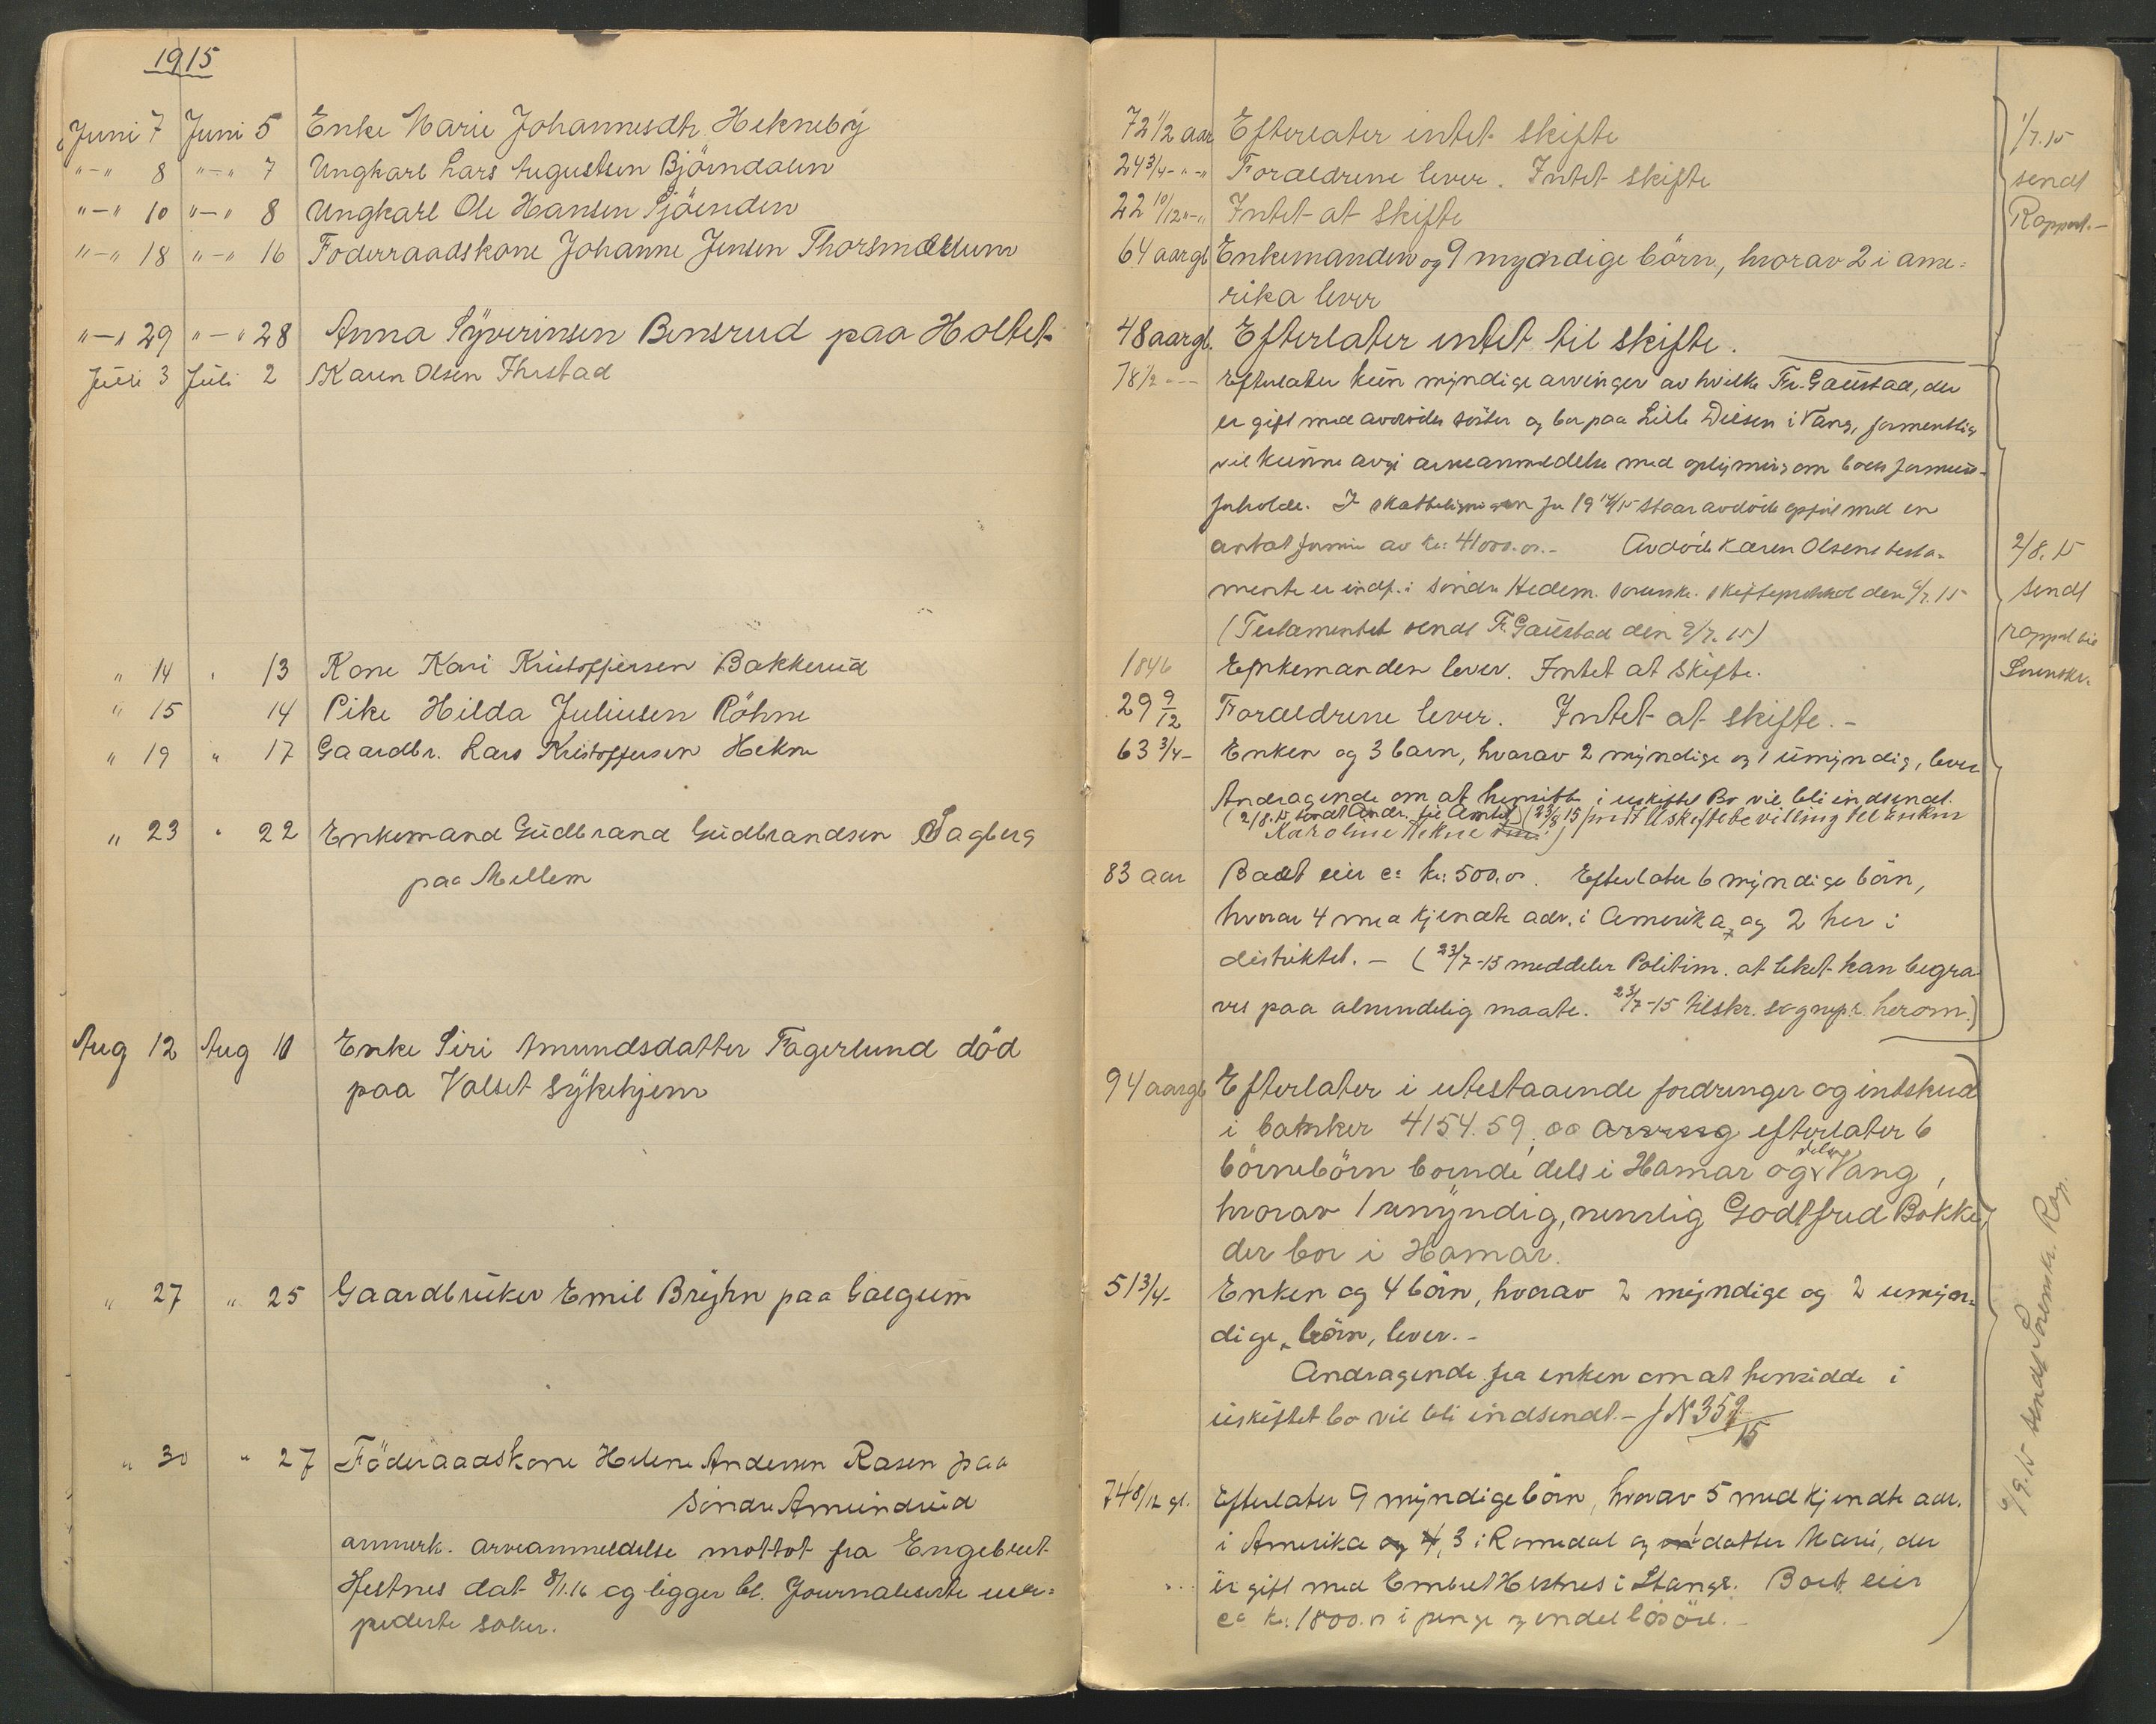 1915
Juni 7 Juni 5 Enke Marie Johannesdtr. Hekneby
"-" 8 "-" 7 Ungkarl Lars Augustsen Bjørndalen
"-" 10 "-" 8 Ungkarl Ole Hansen Sjøenden
"-" 18 "-" 16 Foderraadskone Johanne Jensen Thorsmællum
"-" 29 "-" 28 Anna Syverinsen Bensrud paa Holtet
Juli 3 Juli 2 Karen Olsen
" 14 " 13 Kone Kari Kristoffersen Bakkerud
" 15 14 Pike Hilda Juliusen Röhne
" 19 " 17 Gaardbr. Lars Kristoffersen Hekne
" 23 " 22 Enkemand Gudbrand Gudbrandsen Fagberg
paa Mellem
Aug 12 Aug 10 Enke Siri Amundsdatter Fagerlund död
paa Valset sykehjem
" 27 " 25 Gaardbruker Emil Bryhn paa
" 30 " 27 Föderaadskone Helene Andersen Rasen paa
söndre Amundrud
anmerk. arveanmeldelse mottat fra Engebret
Hestnes dat 8/1.16 og ligger bl. Journaliserte uex=
pederte saker.
72 1/2 aar Efterlater intet skifte
24 3/4 -"-" Forældrene lever. Intet skifte
22 10/12 "-" Intet at skifte
64 aargl Enkemanden og 9 myndige börn, hvorav 2 i ame=
rika lever
48 aargl. Efterlater intet til skifte.
78 1/2 --- Efterlater kun myndige arvinger av hvilke Fr. Gaustad, der
er gift med avdødes søster og bor paa Lille Deisen i Vang, formentlig
vil kunne avgi arveanmeldelse med oplysning om boets formues-
forholde. I skatteligningen for 1914/15 staar avdöde opfört med en
antat formue av kr: 41000.00.- Avdöde Karen Olsens testa-
mente er indf. i söndre Hedem. sorenskr. skifteprotokol den 6/7.15
(Testamentet sendt Fr. Gaustad den 9/7.15)
1846 Enkemanden lever. Intet at skifte.
29 9/12 Forældrene lever. Intet at skifte.-
63 3/4- Enken og 3 barn, hvorav 2 myndige og 1 umyndig, lever
Andragende om at hensitte i uskiftet Bo vil bli indsendt.
(2/8.15 sendt Andr. til Amtet) (23/8 15 uskiftebevilling til enken
Karoline Hekne
83 aar Boet eier ca kr: 500.00. Efterlater 6 myndige börn,
hvorav 4 med kjendte adr. i Amerika, og 2 her i
distriktet.- (23/7-15 meddeler Politim. at liket kan begra-
ves paa almindelig maate. 23/7-15 tilskr. sognepr. herom.)
94 aargl Efterlater i utestaaende fordringer og indskud
i banker 4154.59, efterlater 6
börnebörn boende dels i Hamar og dels Vang,
hvorav 1 umyndig, nemlig Godtfred Bakke,
der bor i Hamar.
51 3/4- Enken og 4 börn, hvorav 2 myndige og 2 umyn=
dige börn, lever.-
Andragende fra enken om at hensidde i
uskiftet bo vil bli indsendt.- J N 359/15
74 8/12 gl. Efterlater 9 myndige börn, hvorav 5 med kjendte adr.
i Amerika og 4, 3 i Romedal og 1 datter Marie, der
er gift med Embret Hestnes i Stange. Boet eier
ca kr. 1800.00 i penge og endel lösöre.-
1/7.15
sendt
Rapport.-
2/8.15
sendt
rapport til
Sorenskr.
6/9.15 sendt Sorenskr. Rap.